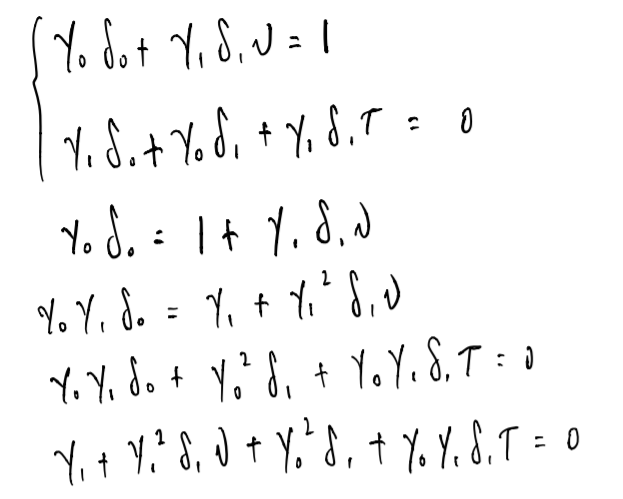 γ₀δ₀ + γ₁δ₁ν = 1
γ₁δ₀ + γ₀δ₁ + γ₁δ₁τ = 0
γ₀δ₀ = 1 + γ₁δ₁ν
γ₀γ₁δ₀ = γ₁ + γ₁²δ₁ν
γ₀γ₁δ₀ + γ₀²δ₁ + γ₀γ₁δ₁τ = 0
γ₁ + γ₁²δ₁ν + γ₀²δ₁ + γ₀γ₁δ₁τ = 0